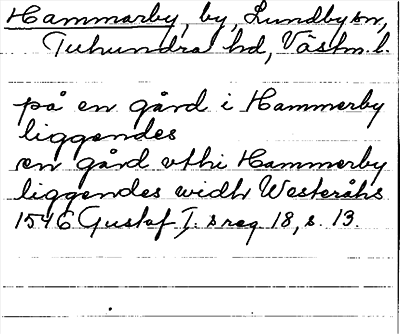 Hammarby, by, Lundby sn,
Tuhundra hd, Västm. l.
på en gård i Hammerby
liggendes
en gård vthi Hammerby
liggendes widh Westeråhs
1546 Gustaf I:s reg 18, s. 13.